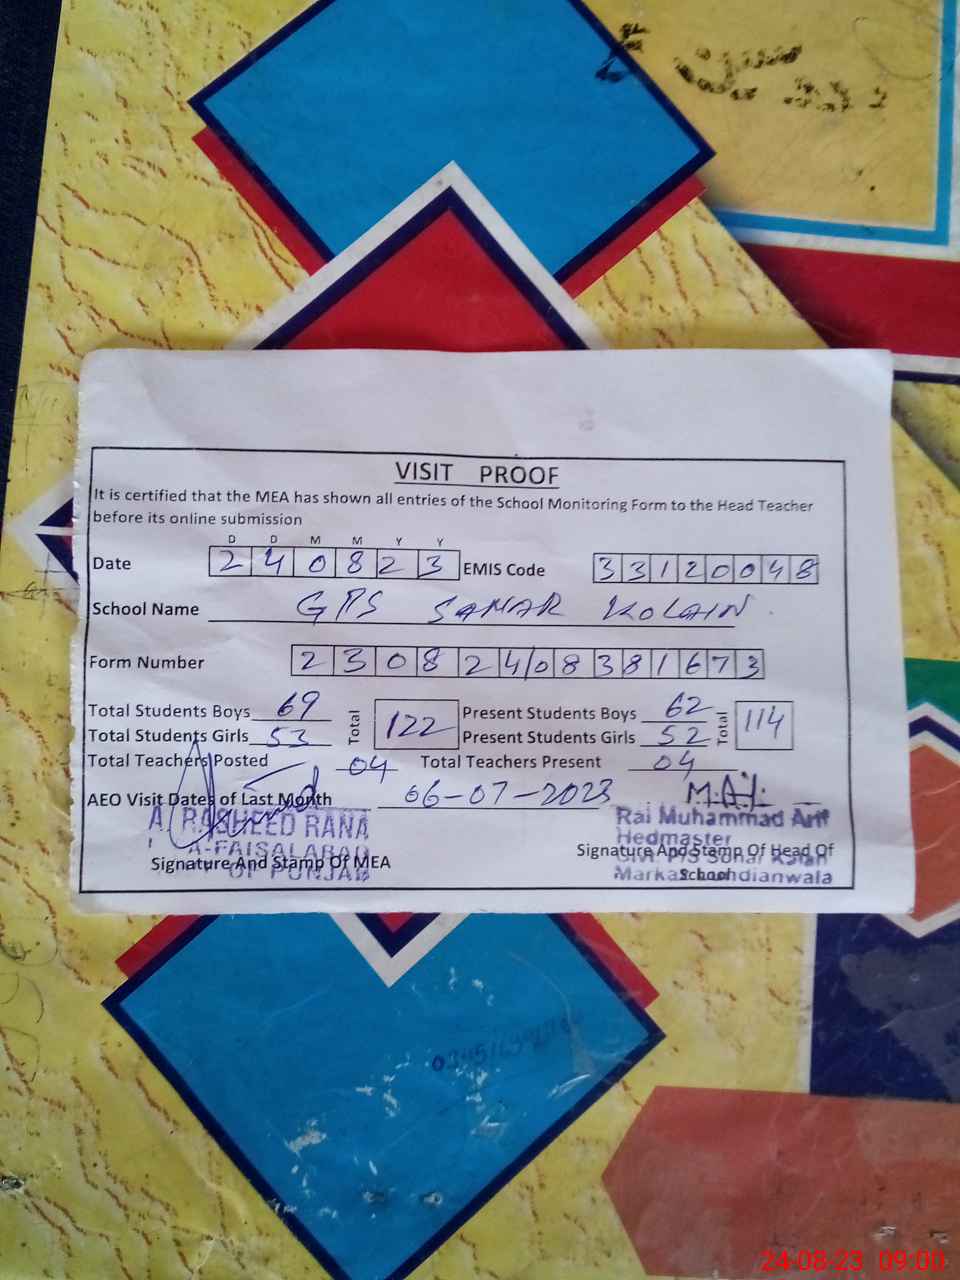 VISIT PROOF
It is certified that the MEA has shown all entries of the School Monitoring Form to the Head Teacher
before its online submission
D D M M Y Y
Date 240823 EMIS Code 33120048
School Name GPS SANAR KOLAIN
Form Number 230824/08381673
Total Students Boys 69 Total 122 Present Students Boys 62 Total 114
Total Students Girls 53 Present Students Girls 52
Total Teachers Posted 04 Total Teachers Present 04
AEO Visit Dates of Last Month 06-07-2023
A. RASHEED RANA
A-FAISALABAD
OF PUNJAB
Signature And Stamp Of MEA
M.Arif
Rai Muhammad Arif
Hedmaster
Signature And Stamp Of Head Of
School
Markaz Lundianwala
24-08-23 09:00